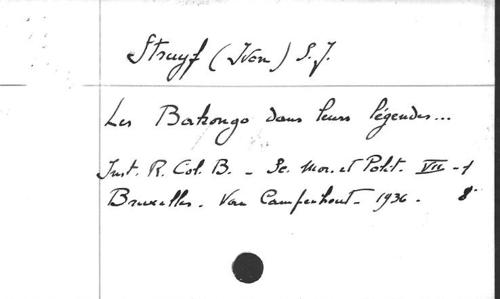 Struyf (Ivon) S.J.
Les Bakongo dans leurs légendes...
Inst. R. Col. B. - Sc. Mor. et Polit. VII - 1
Bruxelles. Van Campenhout - 1936. 8°